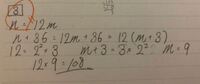 3
n = 12m
n + 36 = 12m + 36 = 12 (m + 3)
12 = 2² × 3 m + 3 = 3 × 2² m = 9
12 × 9 = 108